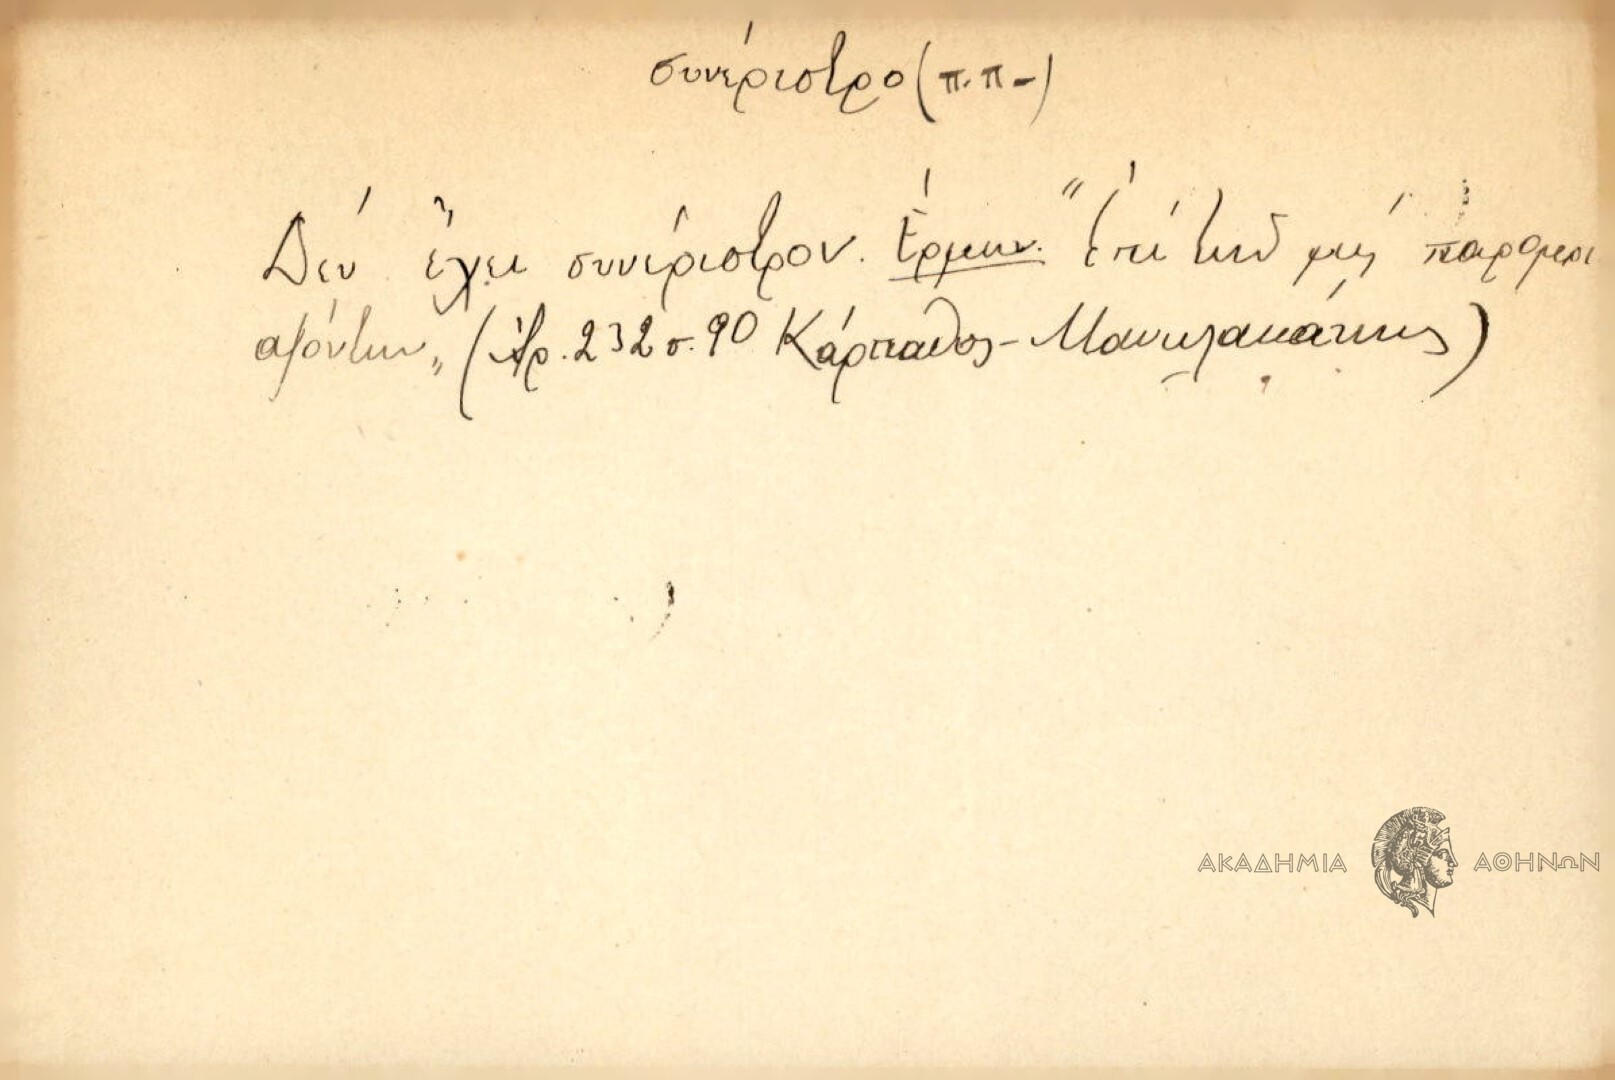 συνέριστρο (π.π-)
Δεν έχει συνέριστρον. Ἑρμην. "ἐπὶ τῶν μὴ παρομοι
αζόντων" (Ἀρ. 232 σ. 90 Κάρπαθος - Μανωλακάκης)
ΑΚΑΔΗΜΙΑ ΑΘΗΝΩΝ